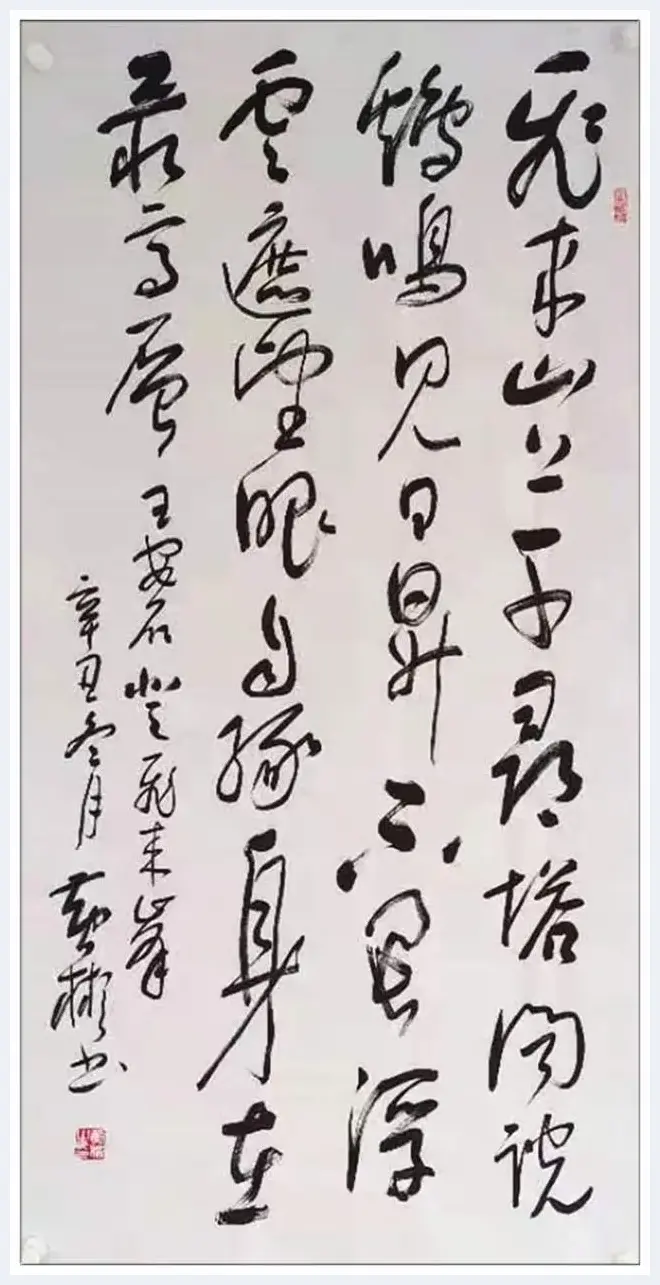 飛来山上千尋塔聞說
鷄鳴見日昇不畏浮
雲遮望眼自緣身在
最高層 王安石登飛来峯
辛丑冬月 彬书